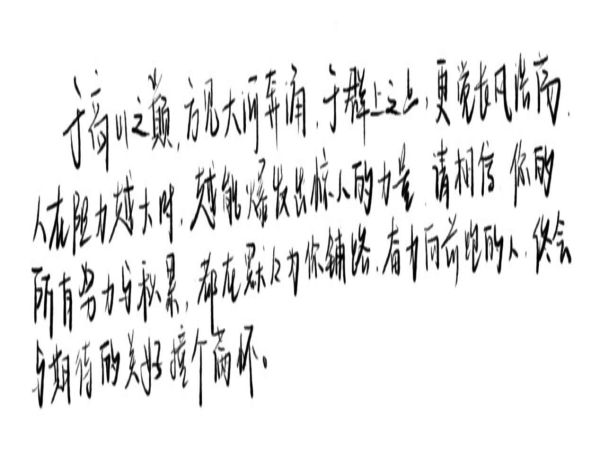 于高山之巅,方见大河奔涌,于群上之上,更觉长风浩荡.
人在阻力越大时,越能爆发出惊人的力量 请相信 你的
所有努力与积累,都在默默为你铺路.奋力向前跑的人.终会
与期待的美好撞个满怀。